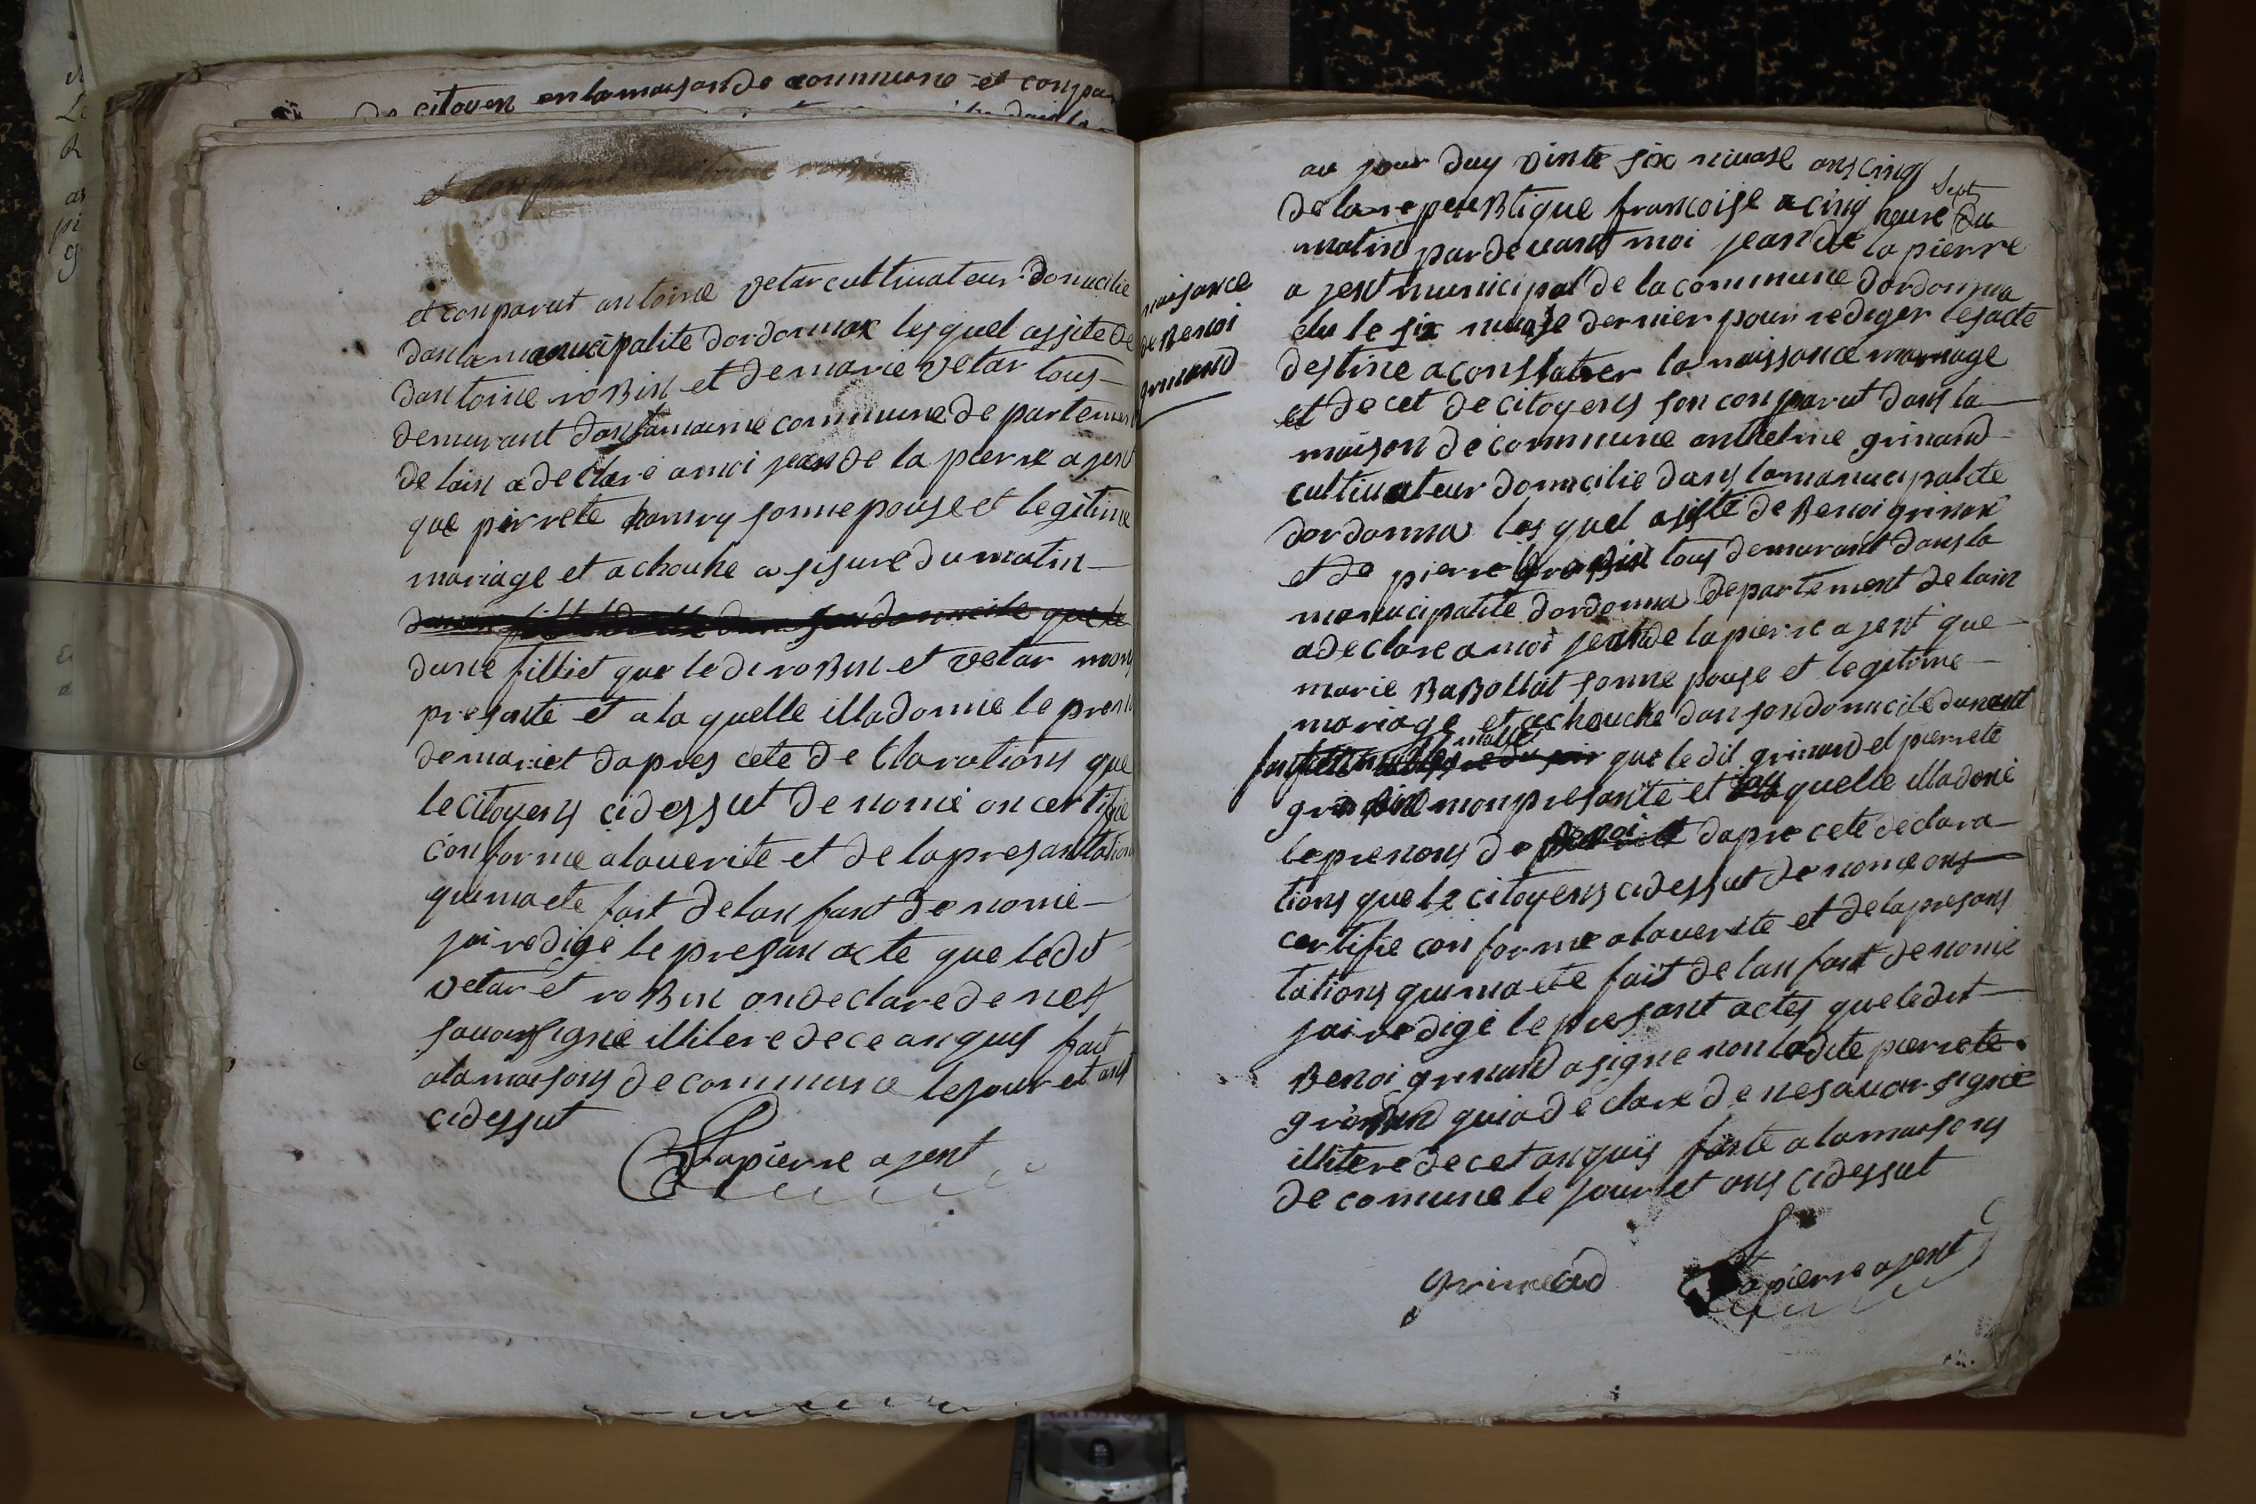 de citoyen en la maison de commune et conpar
et conparut antoine vetar cultivateur domicilie
dan la manucipalite dordonnax lesquel assite de
dantoine roBin et de marie vetar tous
demurant dan la maeme commune departement
de lain a declare a moi jean de la pierre ajent
que pirrete sonnepouse et legitime
mariage et achouhe a sisure du matin
dune filliet que le di roBin et vetar mon
presante et a la quelle illadonne le preno
de mariet dapres cete de Clarations que
le citoyens cidessut de nomé on certifie
conforme alaverite et de lapresantation
quimaete fait delanfant de nomé
jai redigé le presan acte que ledit
vetar et roBin on declare de nes
savoir signé illitere de ce anquis fait
a la maisons de commune lejour et ans
cidessut
Lapierre ajent
naisance
de Benoi
grinand
au jour duy vinte six nivose ans cinq
de la repeuBlique francoise a cinq heure du
Sept
matin pardevant moi jean de la pierre
ajent municipal de la commune dordonna
elu le six nivose dernier pour rediger lesacte
destine aconstater la naissance mariage
et decet de citoyens son conparut dans la
maison de commune anthelme grinand
cultivateur domicilie dans la manucipalite
dordonna lesquel asisté de Benoi grinan
et de pierre tous demurant dans la
manucipalite dordonna departement de lain
adeclare a moi jean de lapierre ajent que
marie BaBollat sonne pouse et legitime
mariage et achouche dan son domacile dunant
malle
que ledit grinand et pierrete
monpresante et quelle illadoné
leprenons de Benoi dapre cete declara
tions que le citoyens cidessut de nomé ons
certifie conforme alaverite et delapresans
tations quimaete fait de lanfant de nomé
jai redigé le presant actes que ledit
Benoi grinand a signe non ladite pierrete
quia declare de ne savoir signé
illitere de cet anquis faite a la maisons
de comune le jour et ans cidessut
grinand
Lapierre ajent